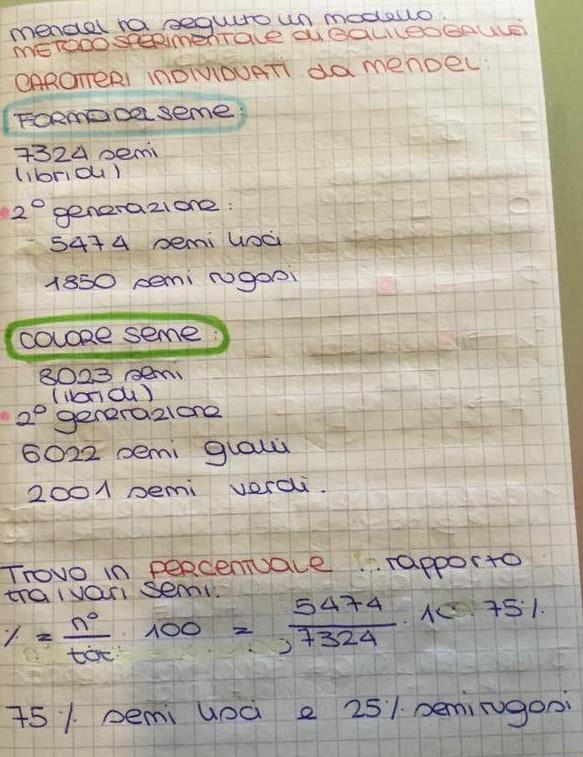 mendel ha seguito un modello:
METODO SPERIMENTALE di GALILEO GALILEI
CAROTTERI INDIVIDUATI da MENDEL:
FORMA DEL SEME:
7324 semi
(ibridi)
2° generazione:
5474 semi lisci
1850 semi rugosi
COLORE SEME:
8023 semi
(ibridi)
2° generazione
6022 semi gialli
2001 semi verdi.
TROVO IN PERCENTUALE rapporto
tra i vari semi:
% = n°/tot · 100 = 5474/7324 · 100 75%
75% semi lisci e 25% semi rugosi